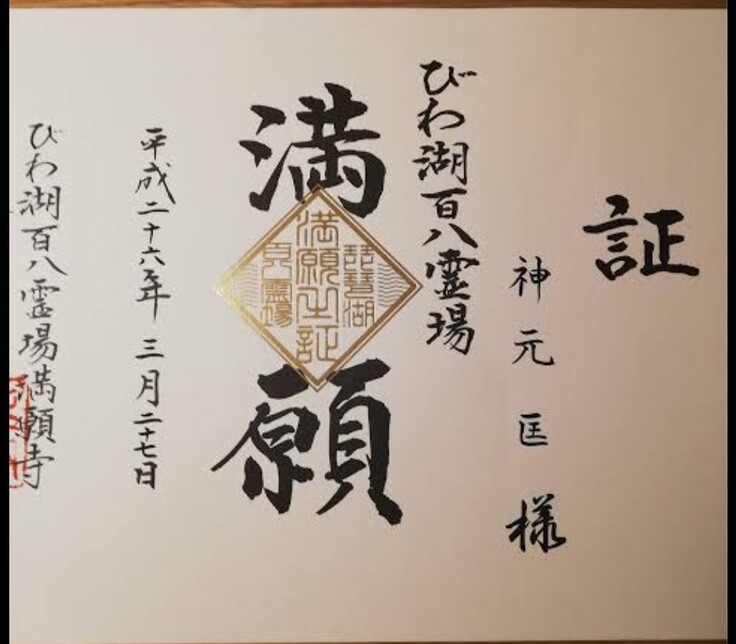 証
神元 匡 様
びわ湖百八霊場
満願
琵琶湖
満願之証
百八霊場
平成二十六年 三月二十七日
びわ湖百八霊場 満願寺